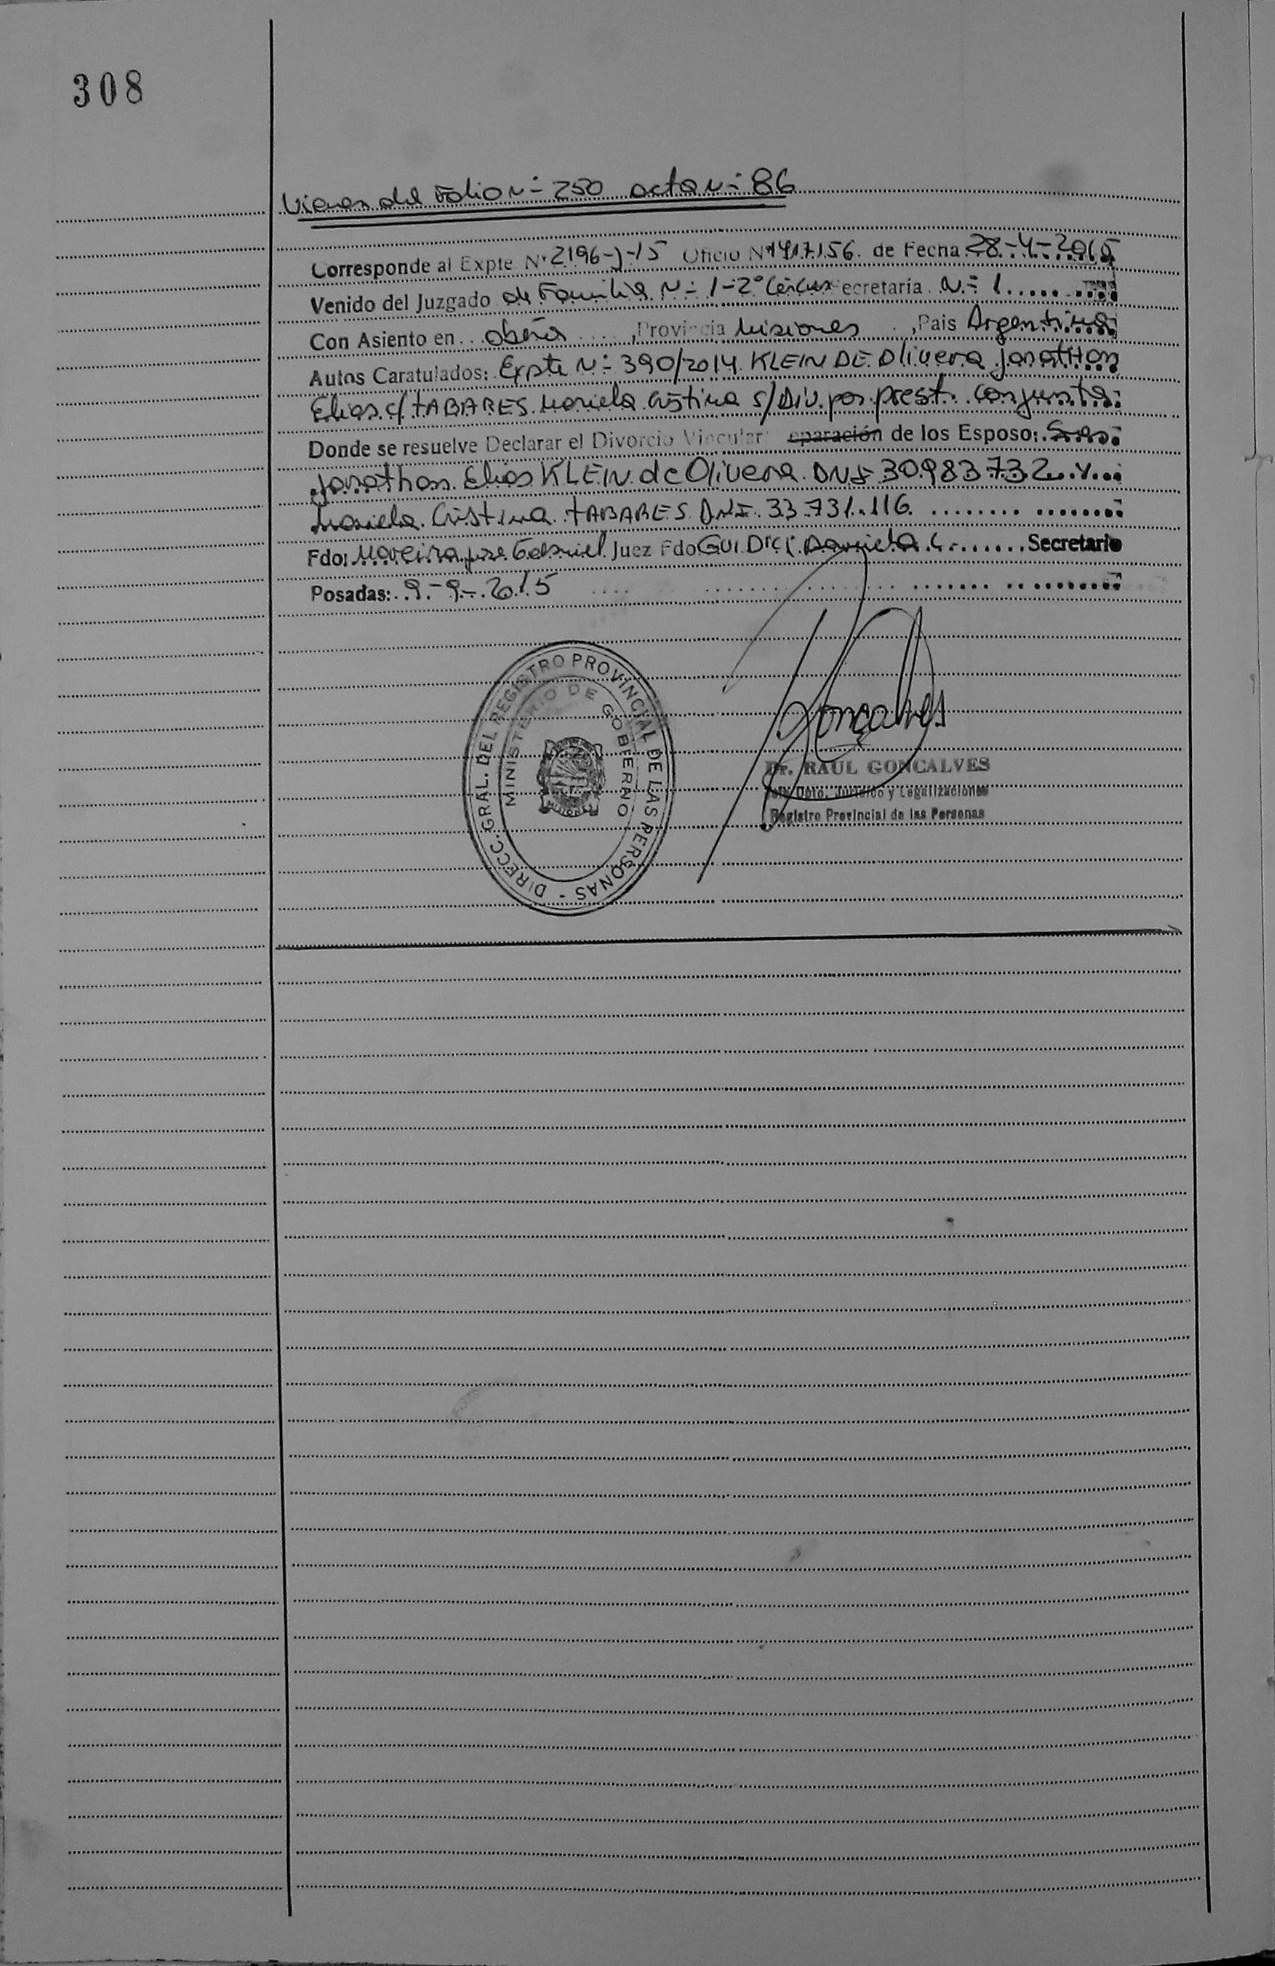 308
Viene del Folio N=- 250 acta N=- 86
Corresponde al Expte N° 2196-J-15 Oficio N° 1417156. de Fecha 28-4-2015
Venido del Juzgado de Familia N=- 1-2° Circus ecretaría N=- 1
Con Asiento en oberá, Provincia Misiones, Pais Argentina
Autos Caratulados: Expte N=- 390/2014 KLEIN DE Olivera Jonathan
Elias c/ TABARES Mariela Cristina s/ Div. por prest. Conjunta
Donde se resuelve Declarar el Divorcio Vincular eparación de los Esposo: Sres:
Jonathan Elias KLEIN de Olivera DNI 30.983.732 y
Mariela Cristina TABARES DNI 33.731.116
Fdo: Moreira jose Gabriel Juez Fdo GUIDICI Daniela C. Secretario
Posadas: 9-9-2015
DIRECC. GRAL. DEL REGISTRO PROVINCIAL DE LAS PERSONAS -
MINISTERIO DE GOBIERNO
Goncalves
Dr. RAUL GONCALVES
Dpto. Jurídico y Legalizaciones
Registro Provincial de las Personas